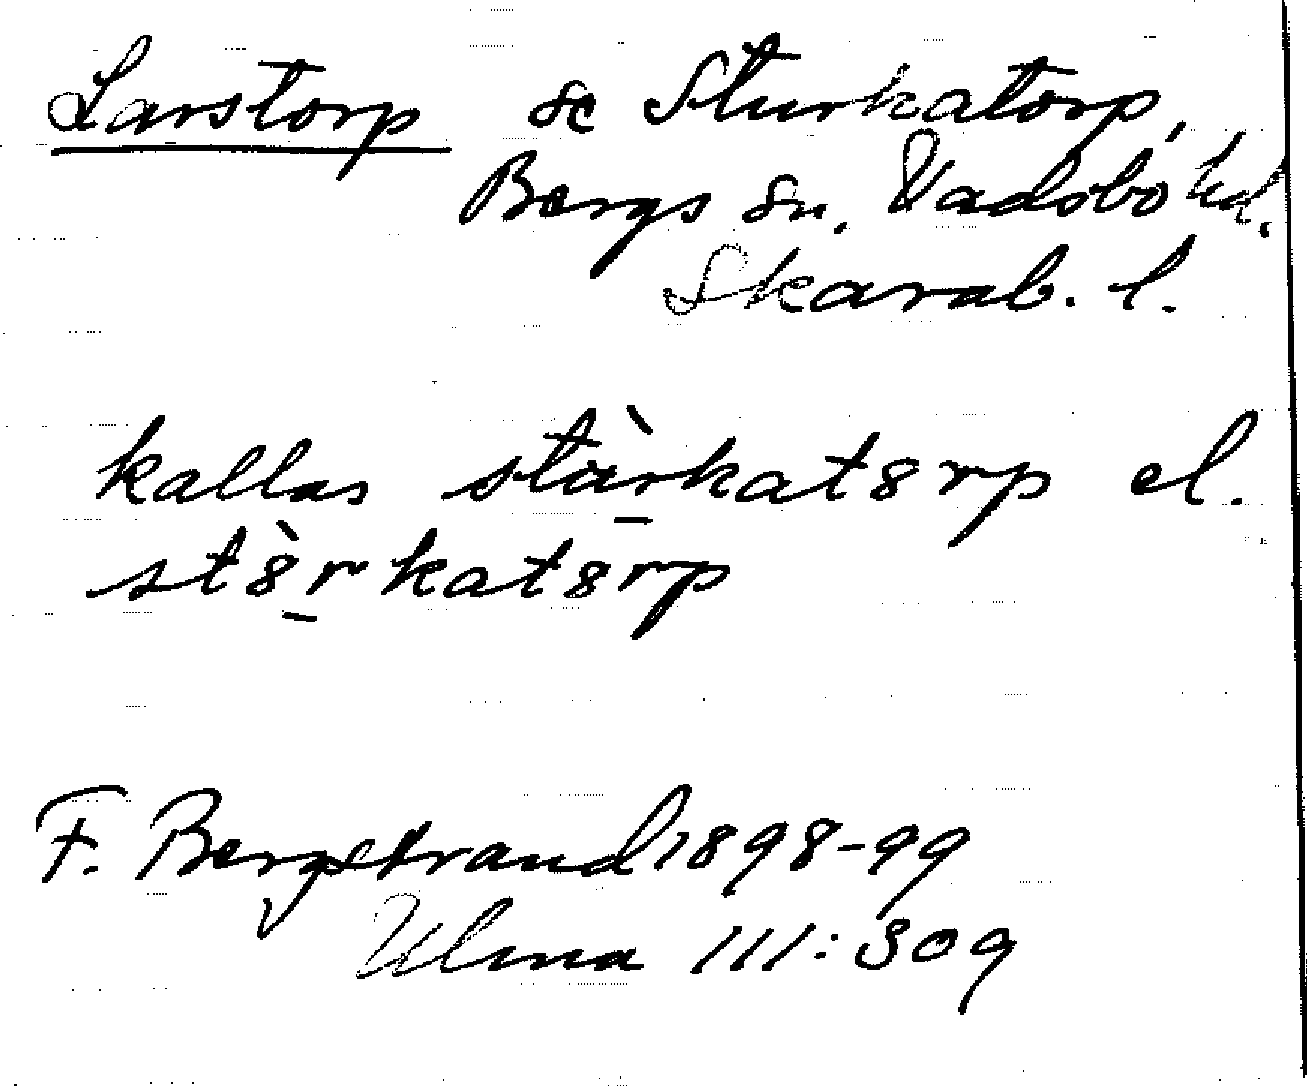 Larstorp se Sturkatorp,
Bergs sn. Vadsbo hd.
Skarab. l.
kallas stàrkat8rp el.
st8̀rkat8rp
F. Bergstrand 1898-99
Ulma 111:309